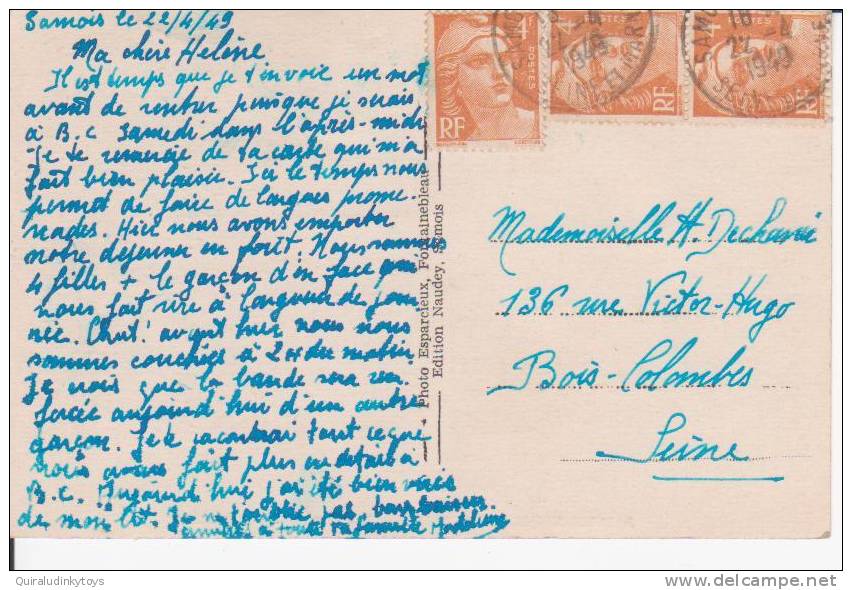 Samois le 22/4/49
Ma chère Hélène
Il est temps que je t'envoie un mot
avant de rentrer puisque je serais
à B.C Samedi dans l'après-midi
Je te remercie de ta carte qui m'a
fait bien plaisir. Ici le temps nous
permet de faire de longues prome-
nades. Hier nous avons emporter
notre déjeuner en forêt. Nous sommes
4 filles + le garçon d'en face qui
nous fait rire à longueur de jour-
née. Chut! avant hier nous nous
sommes couchées à 2 du matin
Je crois que la bande sera ren-
forcée aujourd'hui d'un autre
garçon. Je te raconterai tout ce que
nous avons fait plus en détail à
B.C. Aujourd'hui j'ai été bien
de mon lit. Je n'oublie pas bons baisers
à toute ta famille
Photo Esparcieux, Fontainebleau
Edition Naudey, Samois
4F
POSTES
RF
4F
POSTES
RF
4F
POSTES
RF
SAMOIS
22 -4
1949
SEINE ET MARNE
SAMOIS
18
22 -4
1949
SEINE
Mademoiselle H.
136 rue Victor-Hugo
Bois-Colombes
Seine
Quiraludinkytoys
delcampe.net